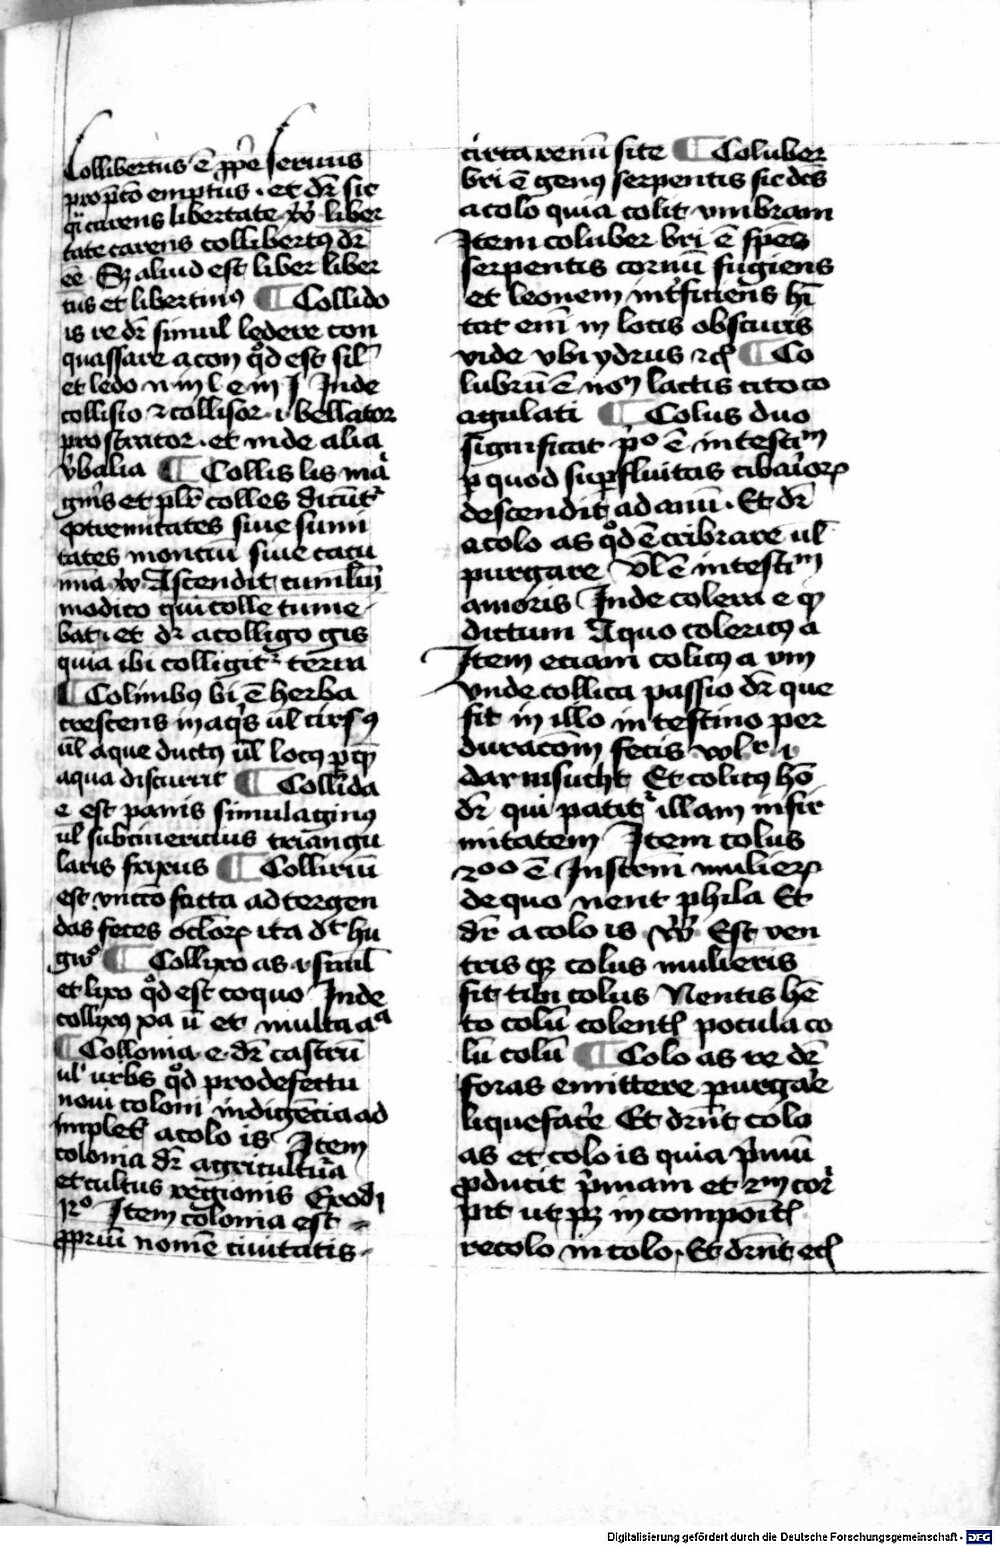 Collibertus ē ꝓpe seruus
pro p̄cō emptus · et dr̄ sic
qͥ carens libertate vn̄ liber
tate carens collibertꝰ dr̄
eē Sꝫ aliud est liber liber
tus et libertinꝰ ¶ Collido
is re dr̄ simul ledere con
quassare a con qͦd est sil̄
et ledo Inde
collisio ⁊ collisor · i· bellator
prostrator · et inde alia
v̾balia ¶ Collis lis
et plr̄ colles dicūtᷣ
siue summi
tates montiū siue cacu
mīa vn̄ Ascendit tumulū
modico qui colle tume
bat · et dr̄ a colligo gis
quia ibi colligitᷣ terra
¶ Colimbꝰ bi ē herba
crescens in aqͥs ul̄
ul̄ aque ductꝰ ul̄ locꝰ
aqua discurrit ¶ Collirida
e est panis simulaginꝰ
ul̄ subcinericius triangu
laris frixus ¶ Collirium
est vnctō facta ad tergen
das feces oclōrꝝ ita dt̄ hu
gwͦ ¶ Collixo as · i· simul
et lixo qͦd est coquo Inde
collixꝰ xa ū et multa aᵃ
¶ Collonia · e · dr̄ castrū
ul̄ urbs qͦd pro defectu
noui coloni indigēcia ad
impletᷣ a colo is Item
colonia dr̄ agricultura
et cultus regionis Exodi
12ͦ Item colonia est
ꝓpriū nomē ciuitatis
circa renū site ¶ Coluber
bri ē genꝰ serpentis sic dc̄s
a colo quia colit vmbram
Item coluber bri ē spēs
serpentis cornū fugiens
et leonem int̾ficiens hī
tat enī in locis obscuris
vide vbi ydrus ⁊c̄ ¶ Co
lubrū ē non lactis cito co
agulati ¶ Colus duo
significat pͦ ē intestinͫ
ꝑ quod suꝑfluitas cibariorꝝ
descendit ad anū · Et dr̄
a colo as qͦd ē cribrare ul̄
purgare Vl̄ ē intestinͫ
amoris Inde colera e
dictum A quo colericꝰ a
Item etiam colicꝰ a vm
vnde collica passio dr̄ que
fit in illo intestino per
duracōm fecis
darmsucht Et colicꝰ hō
dr̄ qui patitᷣ illam infir
mitatem Item colus
2ͦ ē Instrm̄ mulierꝝ
de quo nent phila Et
dr̄ a colo is vn̄ Est ven
tris colus mulieris
sit tibi colus Nentis
colū potula co
lū colū ¶ Colo as re dē
foras emittere purgar̄e
liquefac̾e Et drn̄t colo
as et colo is quia p̄mū
ꝓducit p̄mam et 2m cor
ripit ut pꝫ in
recolo in colo · Et drn̄t